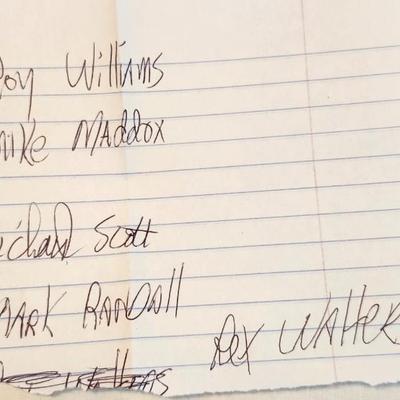 Roy Williams
Mike Maddox
Michael Scott
Mark Randall
Rex Walter